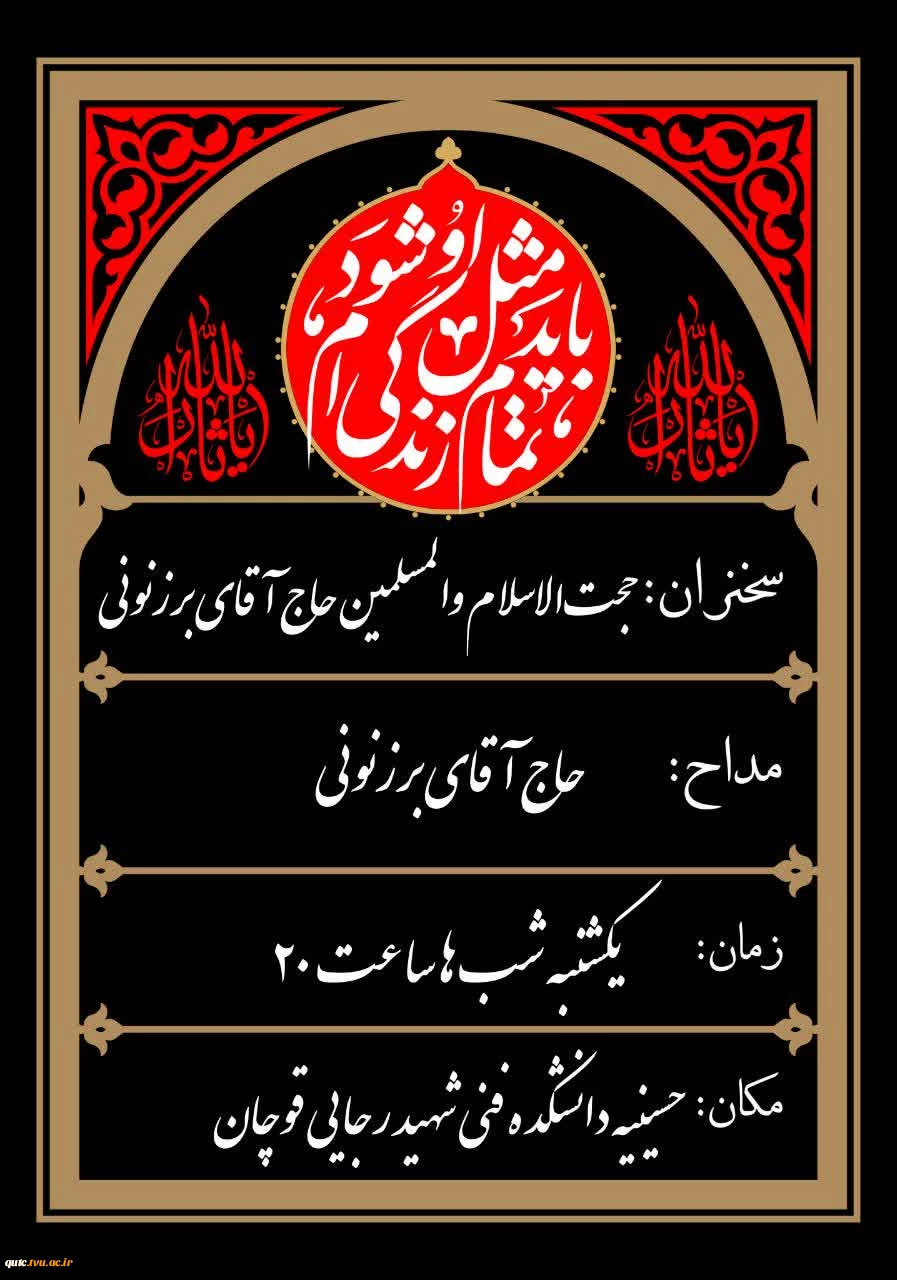 باید مثل او شود
تمام زندگی ام
یا ثارالله
یا ثارالله
سخنران: حجت الاسلام والمسلمین حاج آقای برزنونی
مداح: حاج آقای برزنونی
زمان: یکشنبه شب ها ساعت ۲۰
مکان: حسینیه دانشکده فنی شهید رجایی قوچان
qutc.tvu.ac.ir